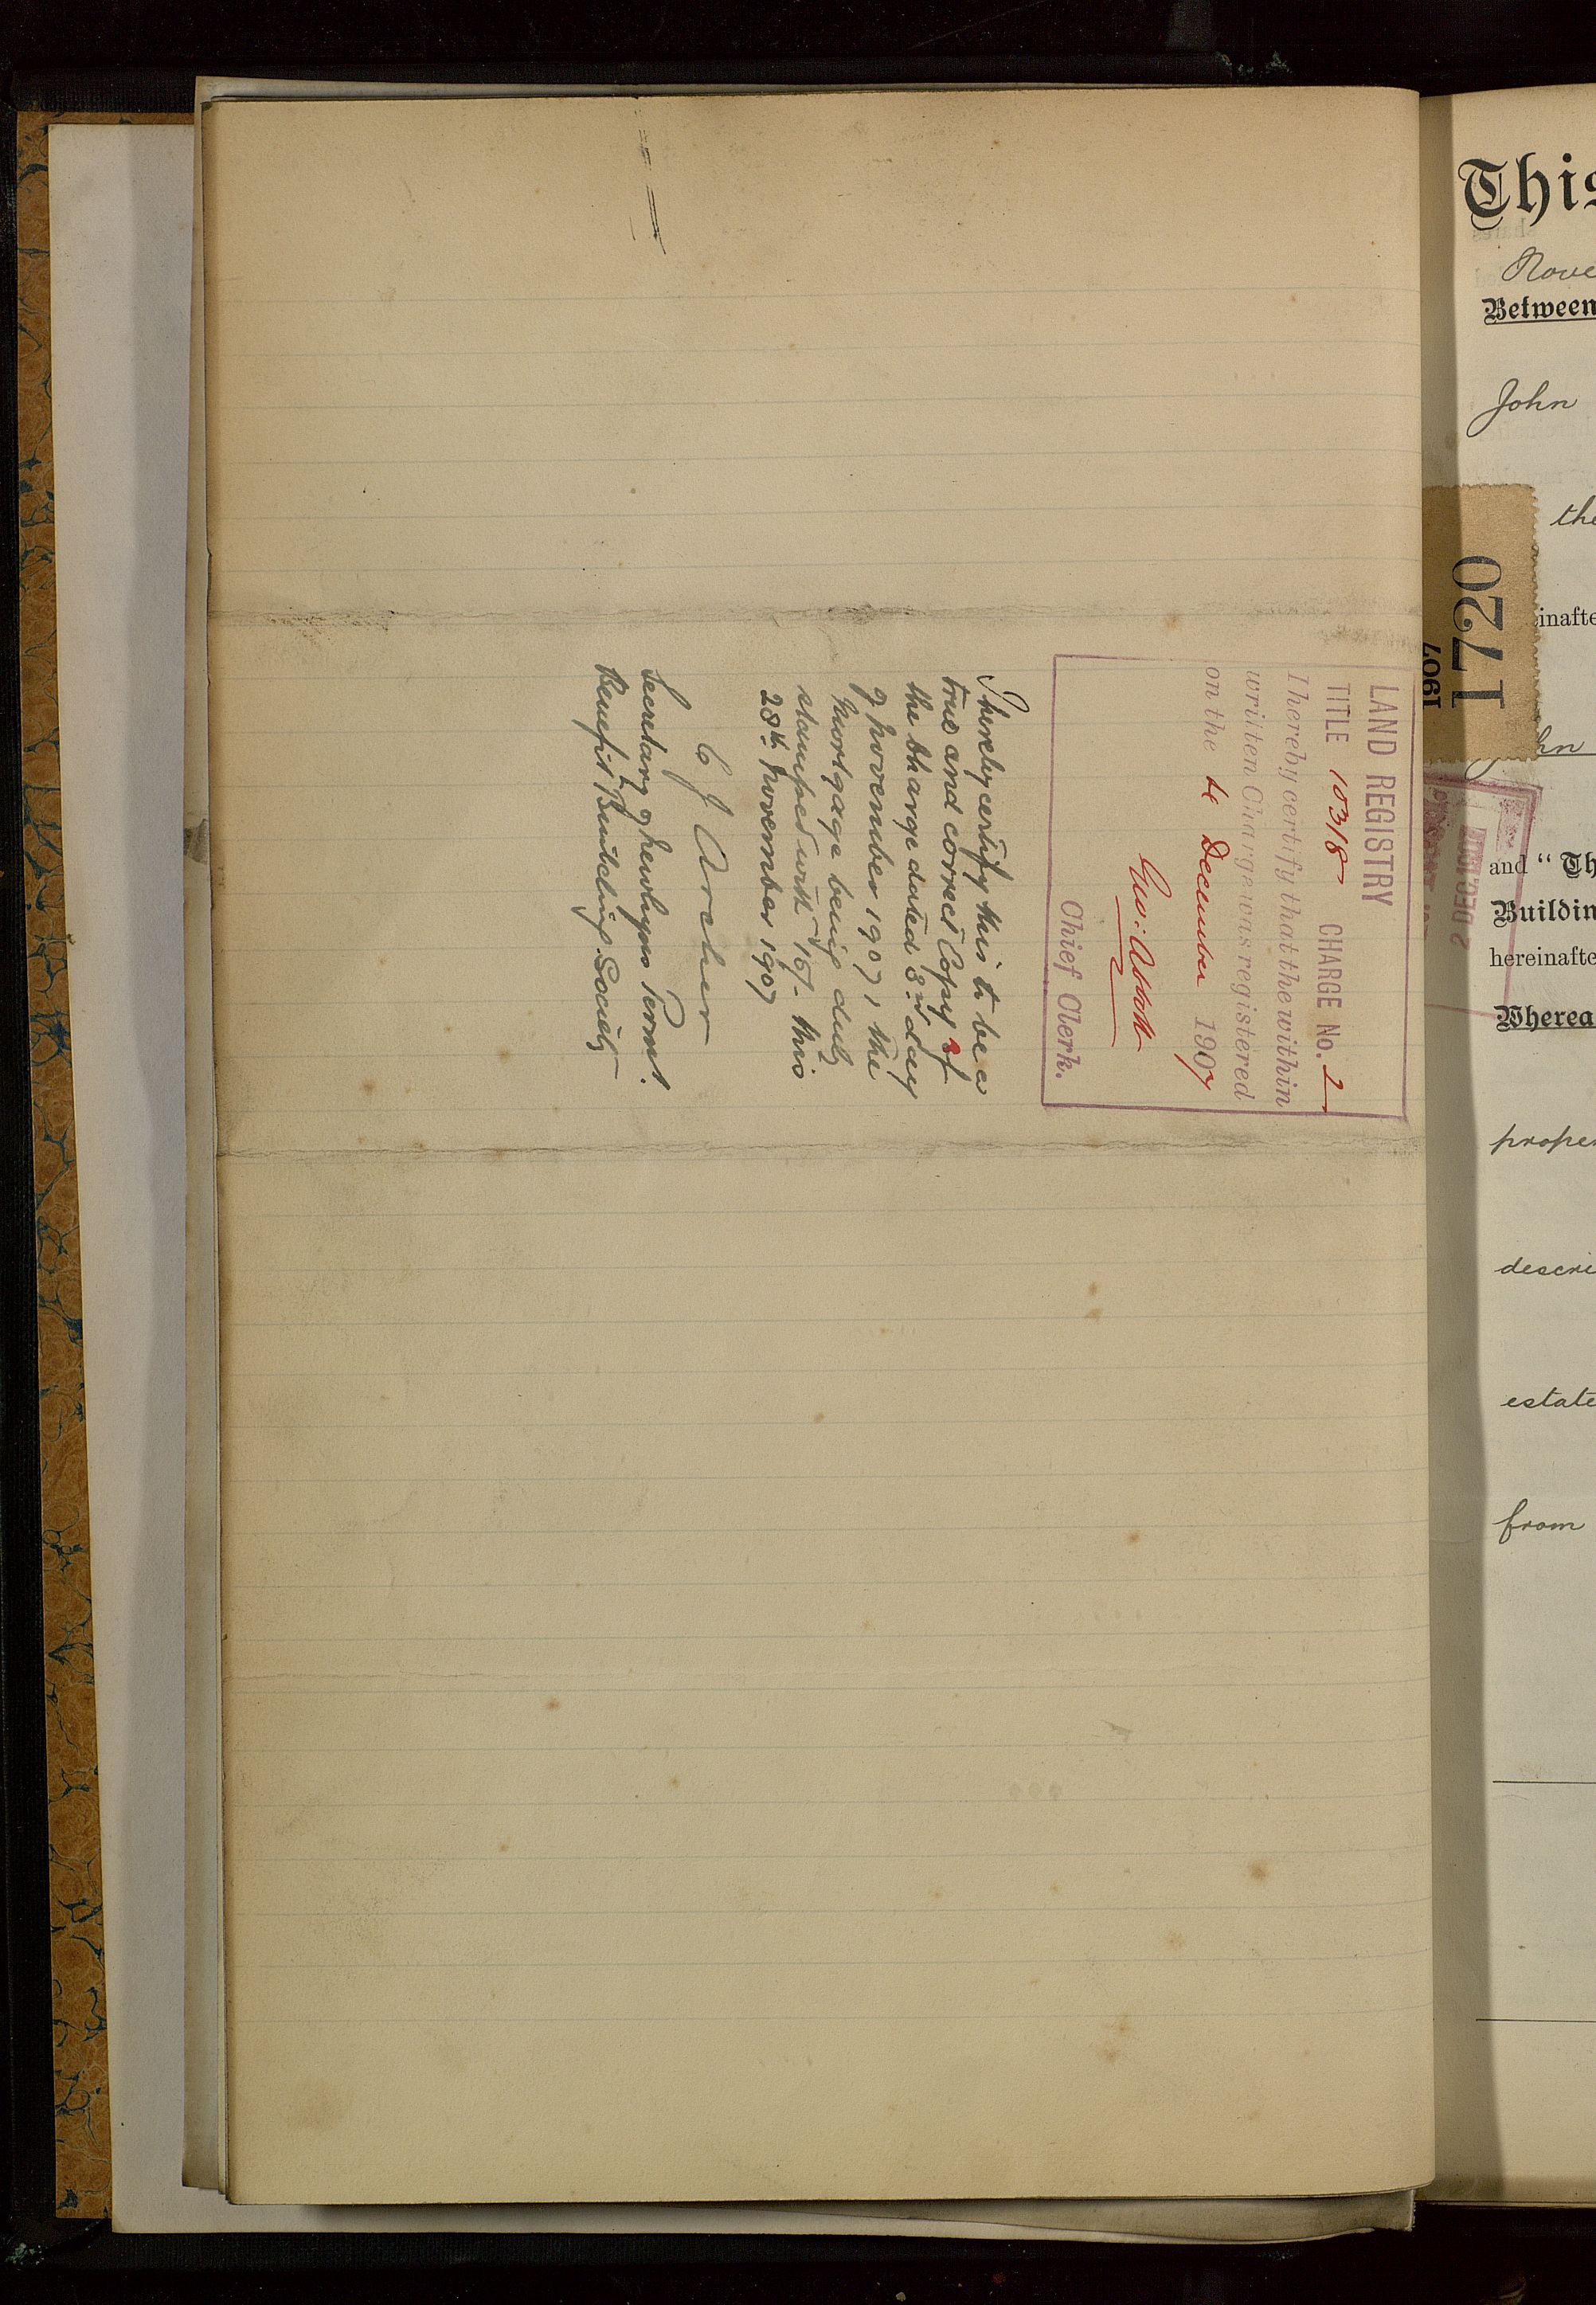 LAND REGISTRY
TITLE 10318 CHARGE No. 2
I hereby certify that the within
written Charge was registered
on the December 1907
Geo: Abbott
Chief Clerk.
I hereby certify this to be a
true and correct Copy of
the Charge dated day
of November 1907, the
Mortgage being duly
stamped with 16/- this
28th November 1907
C J Archer
Secretary of Permt.
Benefit Building Society
This
Nove
Between
John
the
1720
1907
inafte
hn
2 DEC. 1907
and "Th
Buildin
hereinafte
Wherea
proper
descri
estate
from